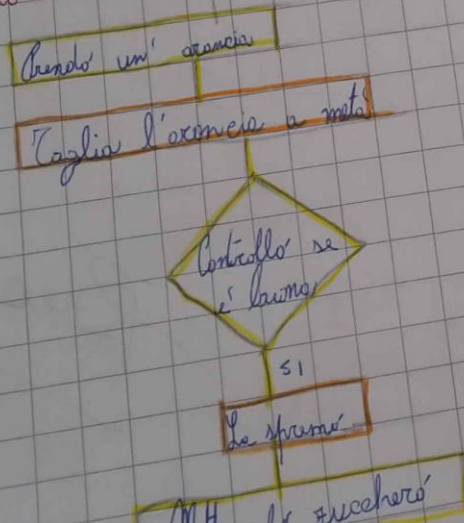 Prendo un' arancia
Taglia l'arancia a metà
Controllo se
è buona
SI
La spremo
lo zucchero